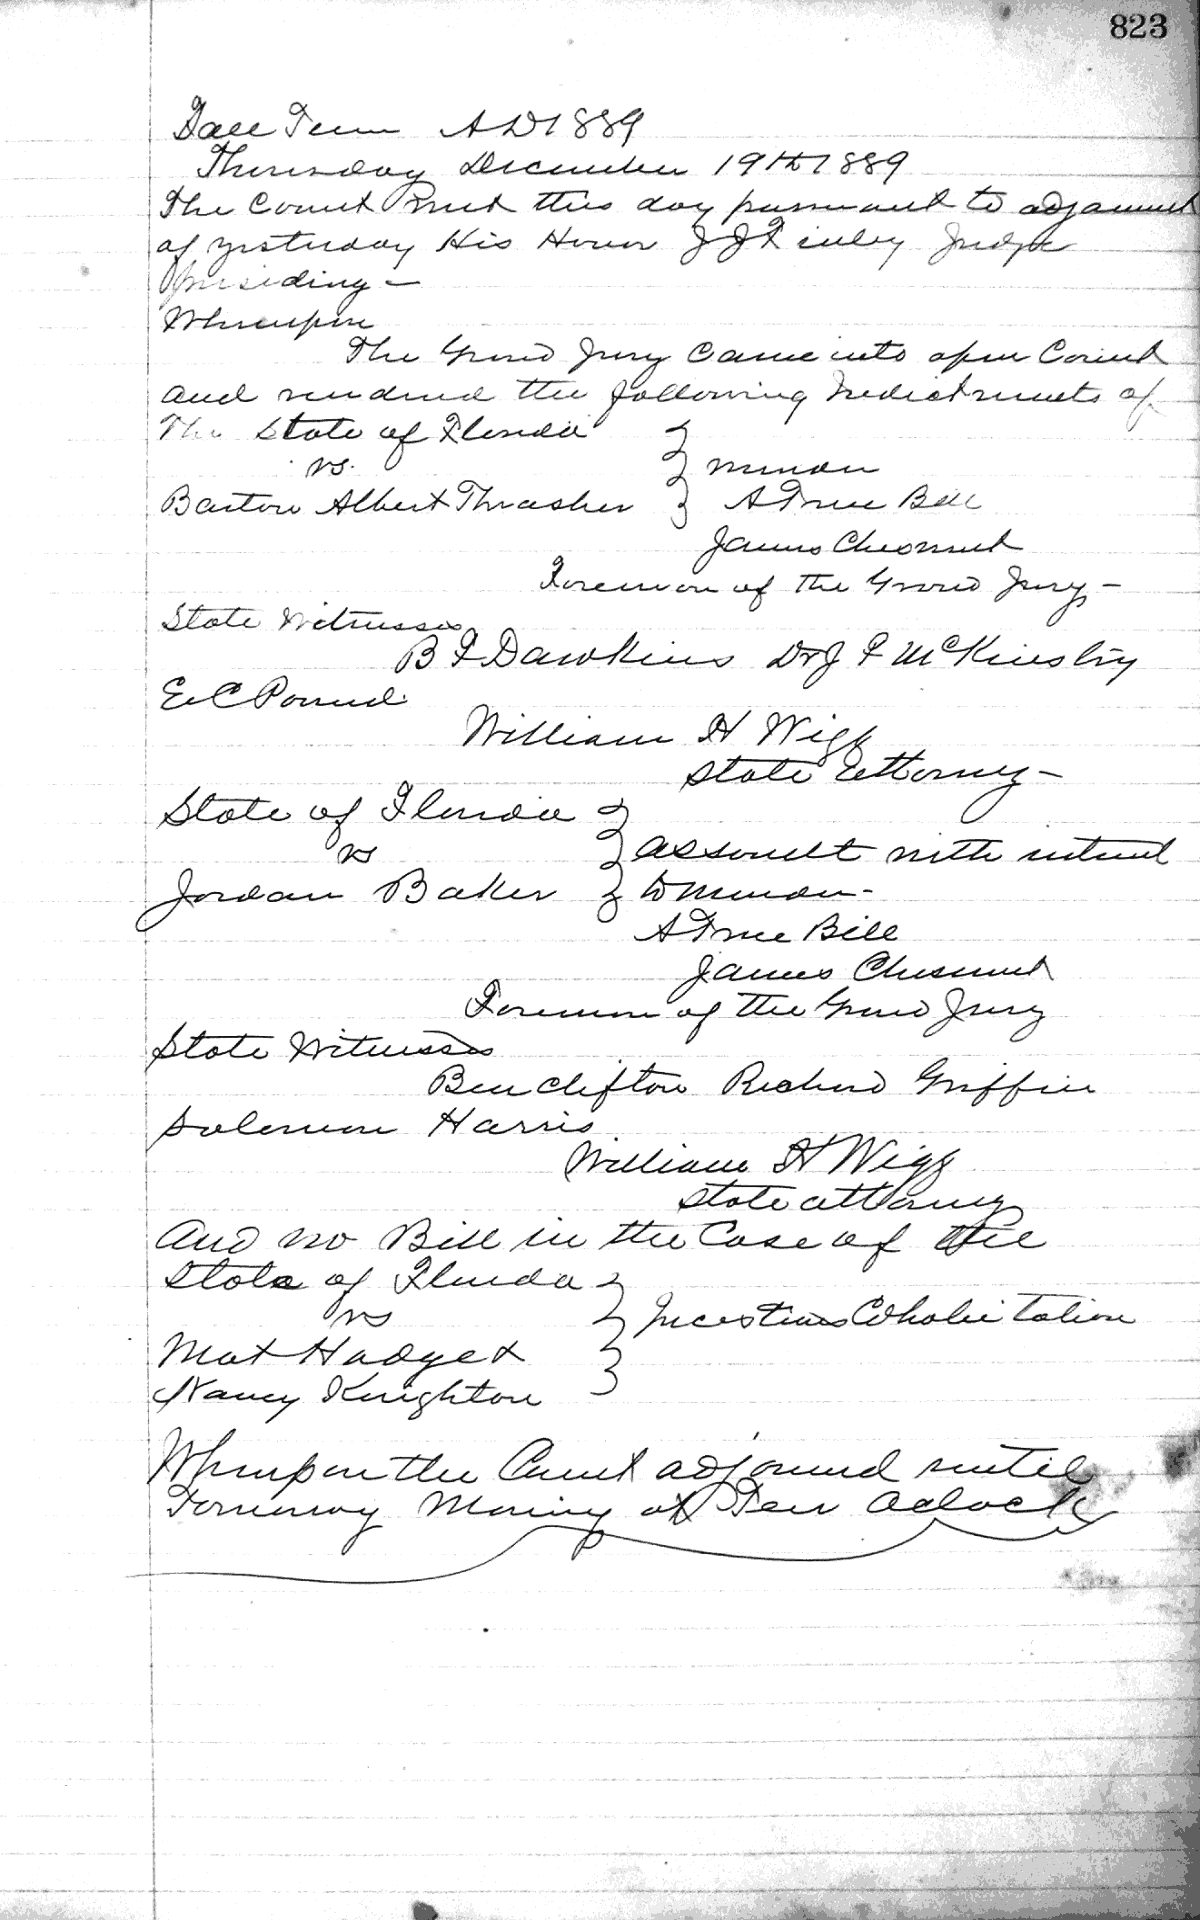 823
Fall Term AD 1889
Thursday December 19th 1889
The Court met this day pursuant to adjournment
of yesterday His Honor J J Finley Judge
presiding -
Whereupon
The Grand Jury came into open Court
and rendered the following Indictments of
The State of Florida
vs.
Murder
Barton Albert Thrasher
A True Bill
James Chesnut
Foreman of the Grand Jury -
State Witnesses
B F Dawkins Dr J F McKinstry
E C Pound
William H Wigg
State Attorney -
State of Florida
vs
assault with intent
Jordan Baker
to Murder -
A True Bill
James Chesnut
Foreman of the Grand Jury
State Witnesses
Ben Clifton Richard Griffin
Solomon Harris
William H Wigg
State attorney
And no Bill in the Case of the
State of Florida
vs
Incestious Cohabitation
Mat Hadget
Nancy Knighton
Whereupon the Court adjourned until
Tomorrow Morning at Ten Oclock